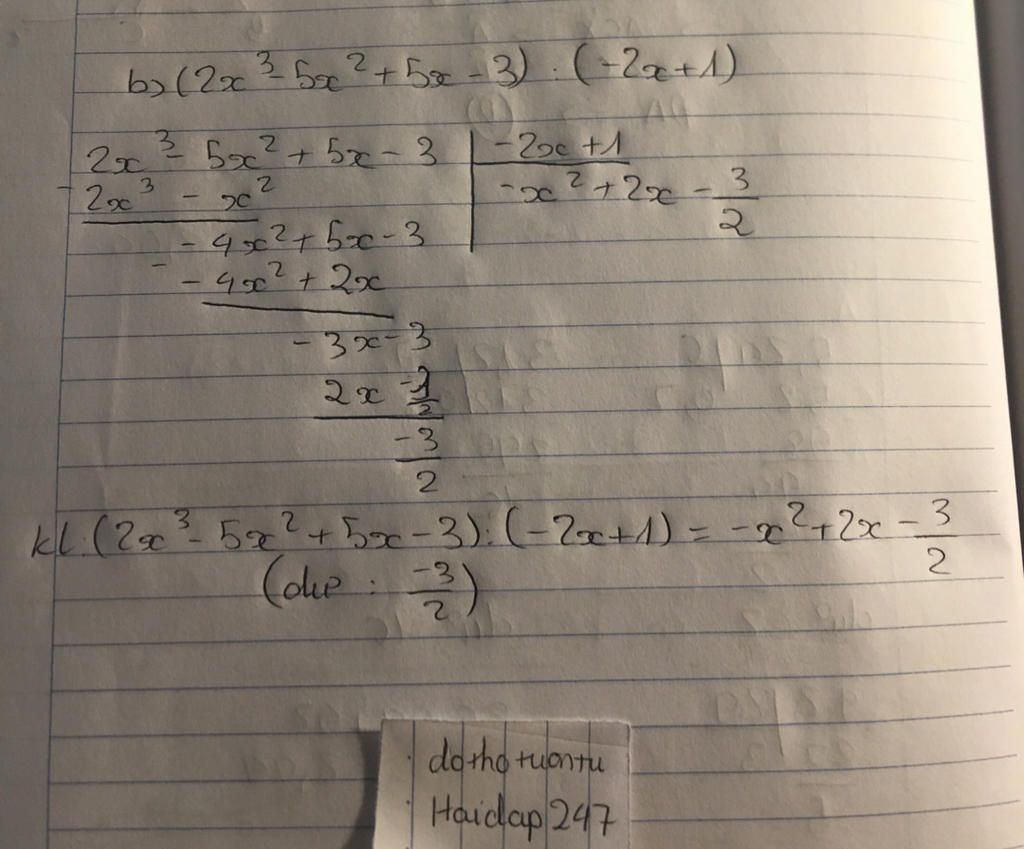 b) (2x³ - 5x² + 5x - 3) : (-2x + 1)
2x³ - 5x² + 5x - 3 | -2x + 1
- 2x³ - x² | -x² + 2x - 3/2
- 4x² + 5x - 3
- - 4x² + 2x
- 3x - 3
2x
-3/2
kl : (2x³ - 5x² + 5x - 3) : (-2x + 1) = -x² + 2x - 3/2
(dư : -3/2)
dothotuontu
Hoidap 247